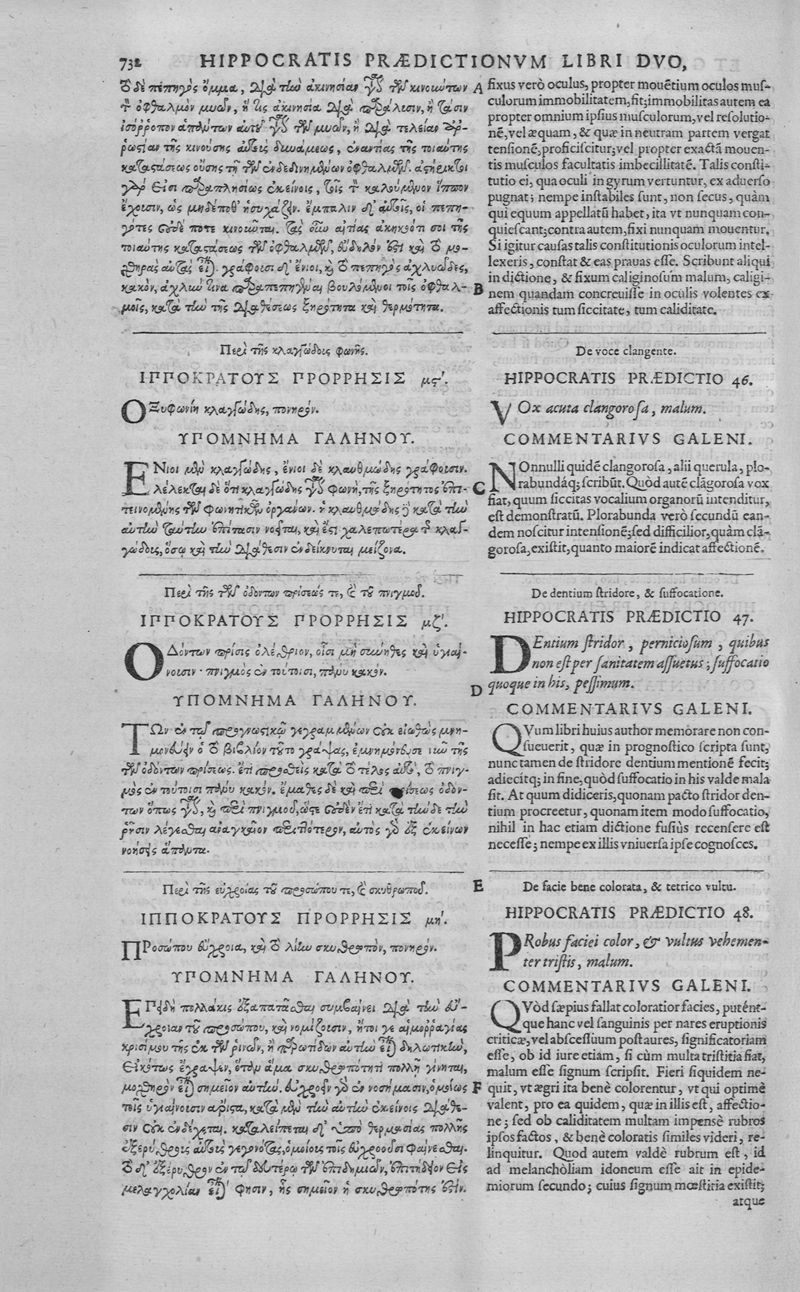 732 HIPPOCRATIS PRÆDICTIONVM LIBRI DVO,
τὸ δὲ πεπηγὸς ὄμμα, διὰ τὴν ἀκινησίαν γίνεται τῶν κινούντων
τὸν ὀφθαλμὸν μυῶν, ἡ δ᾽ ἀκινησία διὰ παράλυσιν, ἢ τάσιν
ἰσόῤῥοπον ἁπάντων αὐτῶν γίνεται τῶν μυῶν, ἢ διὰ τελείαν ἀῤ-
ῥωστίαν τῆς κινούσης αὐτοὺς δυνάμεως, ἐναντίας τῆς τοιαύτης
καταστάσεως οὔσης τῇ τῶν ἐνδεδινημένων ὀφθαλμῶν. ἀστήρικτοι
γάρ εἰσι παραπλησίως ἐκείνοις, τοῖς τὸν καλούμενον ἵππον
ἔχουσιν, ὡς μηδέποθ᾽ ἡσυχάζειν. ἔμπαλιν δ᾽ αὐτοῖς, οἱ πεπη-
γότες οὐδέ ποτε κινοῦνται. τὰς οὖν αἰτίας ἀκηκοότι σοι τῆς
τοιαύτης καταστάσεως τῶν ὀφθαλμῶν, εὔδηλόν ἐστι καὶ τὸ μο-
χθηρὰς αὐτὰς εἶναι. γράφουσι δ᾽ ἔνιοι, καὶ τὸ πεπηγὸς ἀχλυῶδες,
κακόν, ἀχλύν τινα παραπεπηγέναι βουλόμενοι τοῖς ὀφθαλ-
μοῖς, κατὰ τὴν τῆς διαθέσεως ξηρότητα καὶ θερμότητα.
Περὶ τῆς κλαγγώδους φωνῆς.
ΙΠΠΟΚΡΑΤΟΥΣ ΠΡΟΡΡΗΣΙΣ μϛʹ.
ΟΞυφωνίη κλαγγώδης, πονηρόν.
ΥΠΟΜΝΗΜΑ ΓΑΛΗΝΟΥ.
ΕΝιοι μὲν κλαγγώδης, ἔνιοι δὲ κλαυθμώδης γράφουσιν.
λέλεκται δὲ ὅτι κλαγγώδης γίνεται φωνή, τῆς ξηρότητος ἐπι-
τεινομένης τῶν φωνητικῶν ὀργάνων. ἡ κλαυθμώδης δὲ κατὰ τὴν
αὐτὴν ταύτην ἐπίτασιν νοεῖται, καὶ ἔστι χαλεπωτέρα τῆς κλαγ-
γώδους, ὅσῳ καὶ τὴν διάθεσιν ἐνδείκνυται μείζονα.
Περὶ τῆς τῶν ὀδόντων πρίσεώς τε, καὶ τοῦ πνιγμοῦ.
ΙΠΠΟΚΡΑΤΟΥΣ ΠΡΟΡΡΗΣΙΣ μζʹ.
ΟΔόντων πρίσις ὀλέθριον, οἷσι μὴ σύνηθες καὶ ὑγιαί-
νουσιν· πνιγμὸς ἐν τούτοισι, πάνυ κακόν.
ΥΠΟΜΝΗΜΑ ΓΑΛΗΝΟΥ.
ΤΩν ἐν τῷ προγνωστικῷ γεγραμμένων οὐκ εἰωθὼς μνη-
μονεύειν ὁ τὸ βιβλίον τοῦτο γράψας, ἐμνημόνευσε νῦν τῆς
τῶν ὀδόντων πρίσεως. ἔτι προσθεὶς κατὰ τὸ τέλος αὐτοῦ, τὸ πνιγ-
μὸς ἐν τούτοισι πάνυ κακόν. ἔμαθες δὲ καὶ περὶ πρίσεως ὀδόν-
των ὅπως γίνεται, καὶ περὶ πνιγμοῦ, ὥστε οὐδὲν ἔτι κατὰ τήνδε τὴν
ῥῆσιν λέγεσθαι ἀναγκαῖον περιττότερον, αὐτὸς γὰρ ἐξ ἐκείνων
νοήσεις ἅπαντα.
Περὶ τῆς εὐχροίας τοῦ προσώπου τε, καὶ σκυθρωποῦ.
ΙΠΠΟΚΡΑΤΟΥΣ ΠΡΟΡΡΗΣΙΣ μηʹ.
ΠΡοσώπου εὔχροια, καὶ τὸ λίην σκυθρωπόν, πονηρόν.
ΥΠΟΜΝΗΜΑ ΓΑΛΗΝΟΥ.
ΕΠειδὴ πολλάκις ἐξαπατᾶσθαι συμβαίνει διὰ τὴν εὔ-
χροιαν τοῦ προσώπου, καὶ νομίζουσιν, ἤτοι γε αἱμοῤῥαγίας
κρισίμου τῆς ἐκ τῶν ῥινῶν, ἢ παρωτίδων αὐτὴν εἶναι δηλωτικήν,
εἰκότως ἔγραψεν, ὅταν ἅμα σκυθρωπότητι πολλῇ γίνηται,
μοχθηρὸν εἶναι σημεῖον αὐτήν. εὔχρουν γὰρ ἐν νοσήμασιν, ὁμοίως
τοῖς ὑγιαίνουσιν ἄριστα, κατὰ μὲν τὴν αὐτὴν ἐκείνοις διάθε-
σιν οὐκ ἐνδέχεται, καταλείπεται δ᾽ ὑπὸ θερμασίας πολλῆς
ἐξερύθρους αὐτοὺς γεγονότας, ὁμοίους τοῖς εὐχροοῦσι φαίνεσθαι.
τὸ δ᾽ ἐξέρυθρον ἐν τῷ δευτέρῳ τῶν ἐπιδημιῶν, ἐπιτήδειον εἰς
μελαγχολίαν εἶναί φησιν, ἧς σημεῖον ἡ σκυθρωπότης ἐστίν.
A
B
C
D
E
F
fixus verò oculus, propter mouẽtium oculos mus-
culorum immobilitatem, fit; immobilitas autem ea
propter omnium ipsius musculorum, vel resolutio-
nẽ, vel æquam, & quæ in neutram partem vergat
tensionẽ, proficiscitur; vel propter exactã mouen-
tis musculos facultatis imbecillitatẽ. Talis consti-
tutio ei, qua oculi in gyrum vertuntur, ex aduerso
pugnat; nempe instabiles sunt, non secus, quàm
qui equum appellatũ habet, ita vt nunquam con-
quiescant; contra autem, fixi nunquam mouentur.
Si igitur causas talis constitutionis oculorum intel-
lexeris, constat & eas prauas esse. Scribunt aliqui
in dictione, & fixum caliginosum malum, caligi-
nem quandam concreuisse in oculis volentes ex
affectionis tum siccitate, tum caliditate.
De voce clangente.
HIPPOCRATIS PRÆDICTIO 46.
VOx acuta clangorosa, malum.
COMMENTARIVS GALENI.
NOnnulli quidẽ clangorosa, alii querula, plo-
rabundáq; scribũt. Quòd autẽ clãgorosa vox
fiat, quum siccitas vocalium organorũ intenditur,
est demonstratũ. Plorabunda verò secundũ ean-
dem noscitur intensionẽ; sed difficilior, quàm clã-
gorosa, existit, quanto maiorẽ indicat affectionẽ.
De dentium stridore, & suffocatione.
HIPPOCRATIS PRÆDICTIO 47.
DEntium stridor, perniciosum, quibus
non est per sanitatem assuetus; suffocatio
quoque in his, pessimum.
COMMENTARIVS GALENI.
QVum libri huius author memorare non con-
sueuerit, quæ in prognostico scripta sunt,
nunc tamen de stridore dentium mentionẽ fecit;
adiecitq; in fine, quòd suffocatio in his valde mala
sit. At quum didiceris, quonam pacto stridor den-
tium procreetur, quonam item modo suffocatio,
nihil in hac etiam dictione fusiùs recensere est
necesse; nempe ex illis vniuersa ipse cognosces.
De facie bene colorata, & tetrico vultu.
HIPPOCRATIS PRÆDICTIO 48.
PRobus faciei color, & vultus vehemen-
ter tristis, malum.
COMMENTARIVS GALENI.
QVòd sæpius fallat coloratior facies, putént-
que hanc vel sanguinis per nares eruptionis
criticæ, vel abscessuum post aures, significatoriam
esse, ob id iure etiam, si cùm multa tristitia fiat,
malum esse signum scripsit. Fieri siquidem ne-
quit, vt ægri ita benè colorentur, vt qui optimè
valent, pro ea quidem, quæ in illis est, affectio-
ne; sed ob caliditatem multam impensè rubros
ipsos factos, & benè coloratis similes videri, re-
linquitur. Quod autem valdè rubrum est, id
ad melancholiam idoneum esse ait in epide-
miorum secundo; cuius signum mœstitia existit;
atque